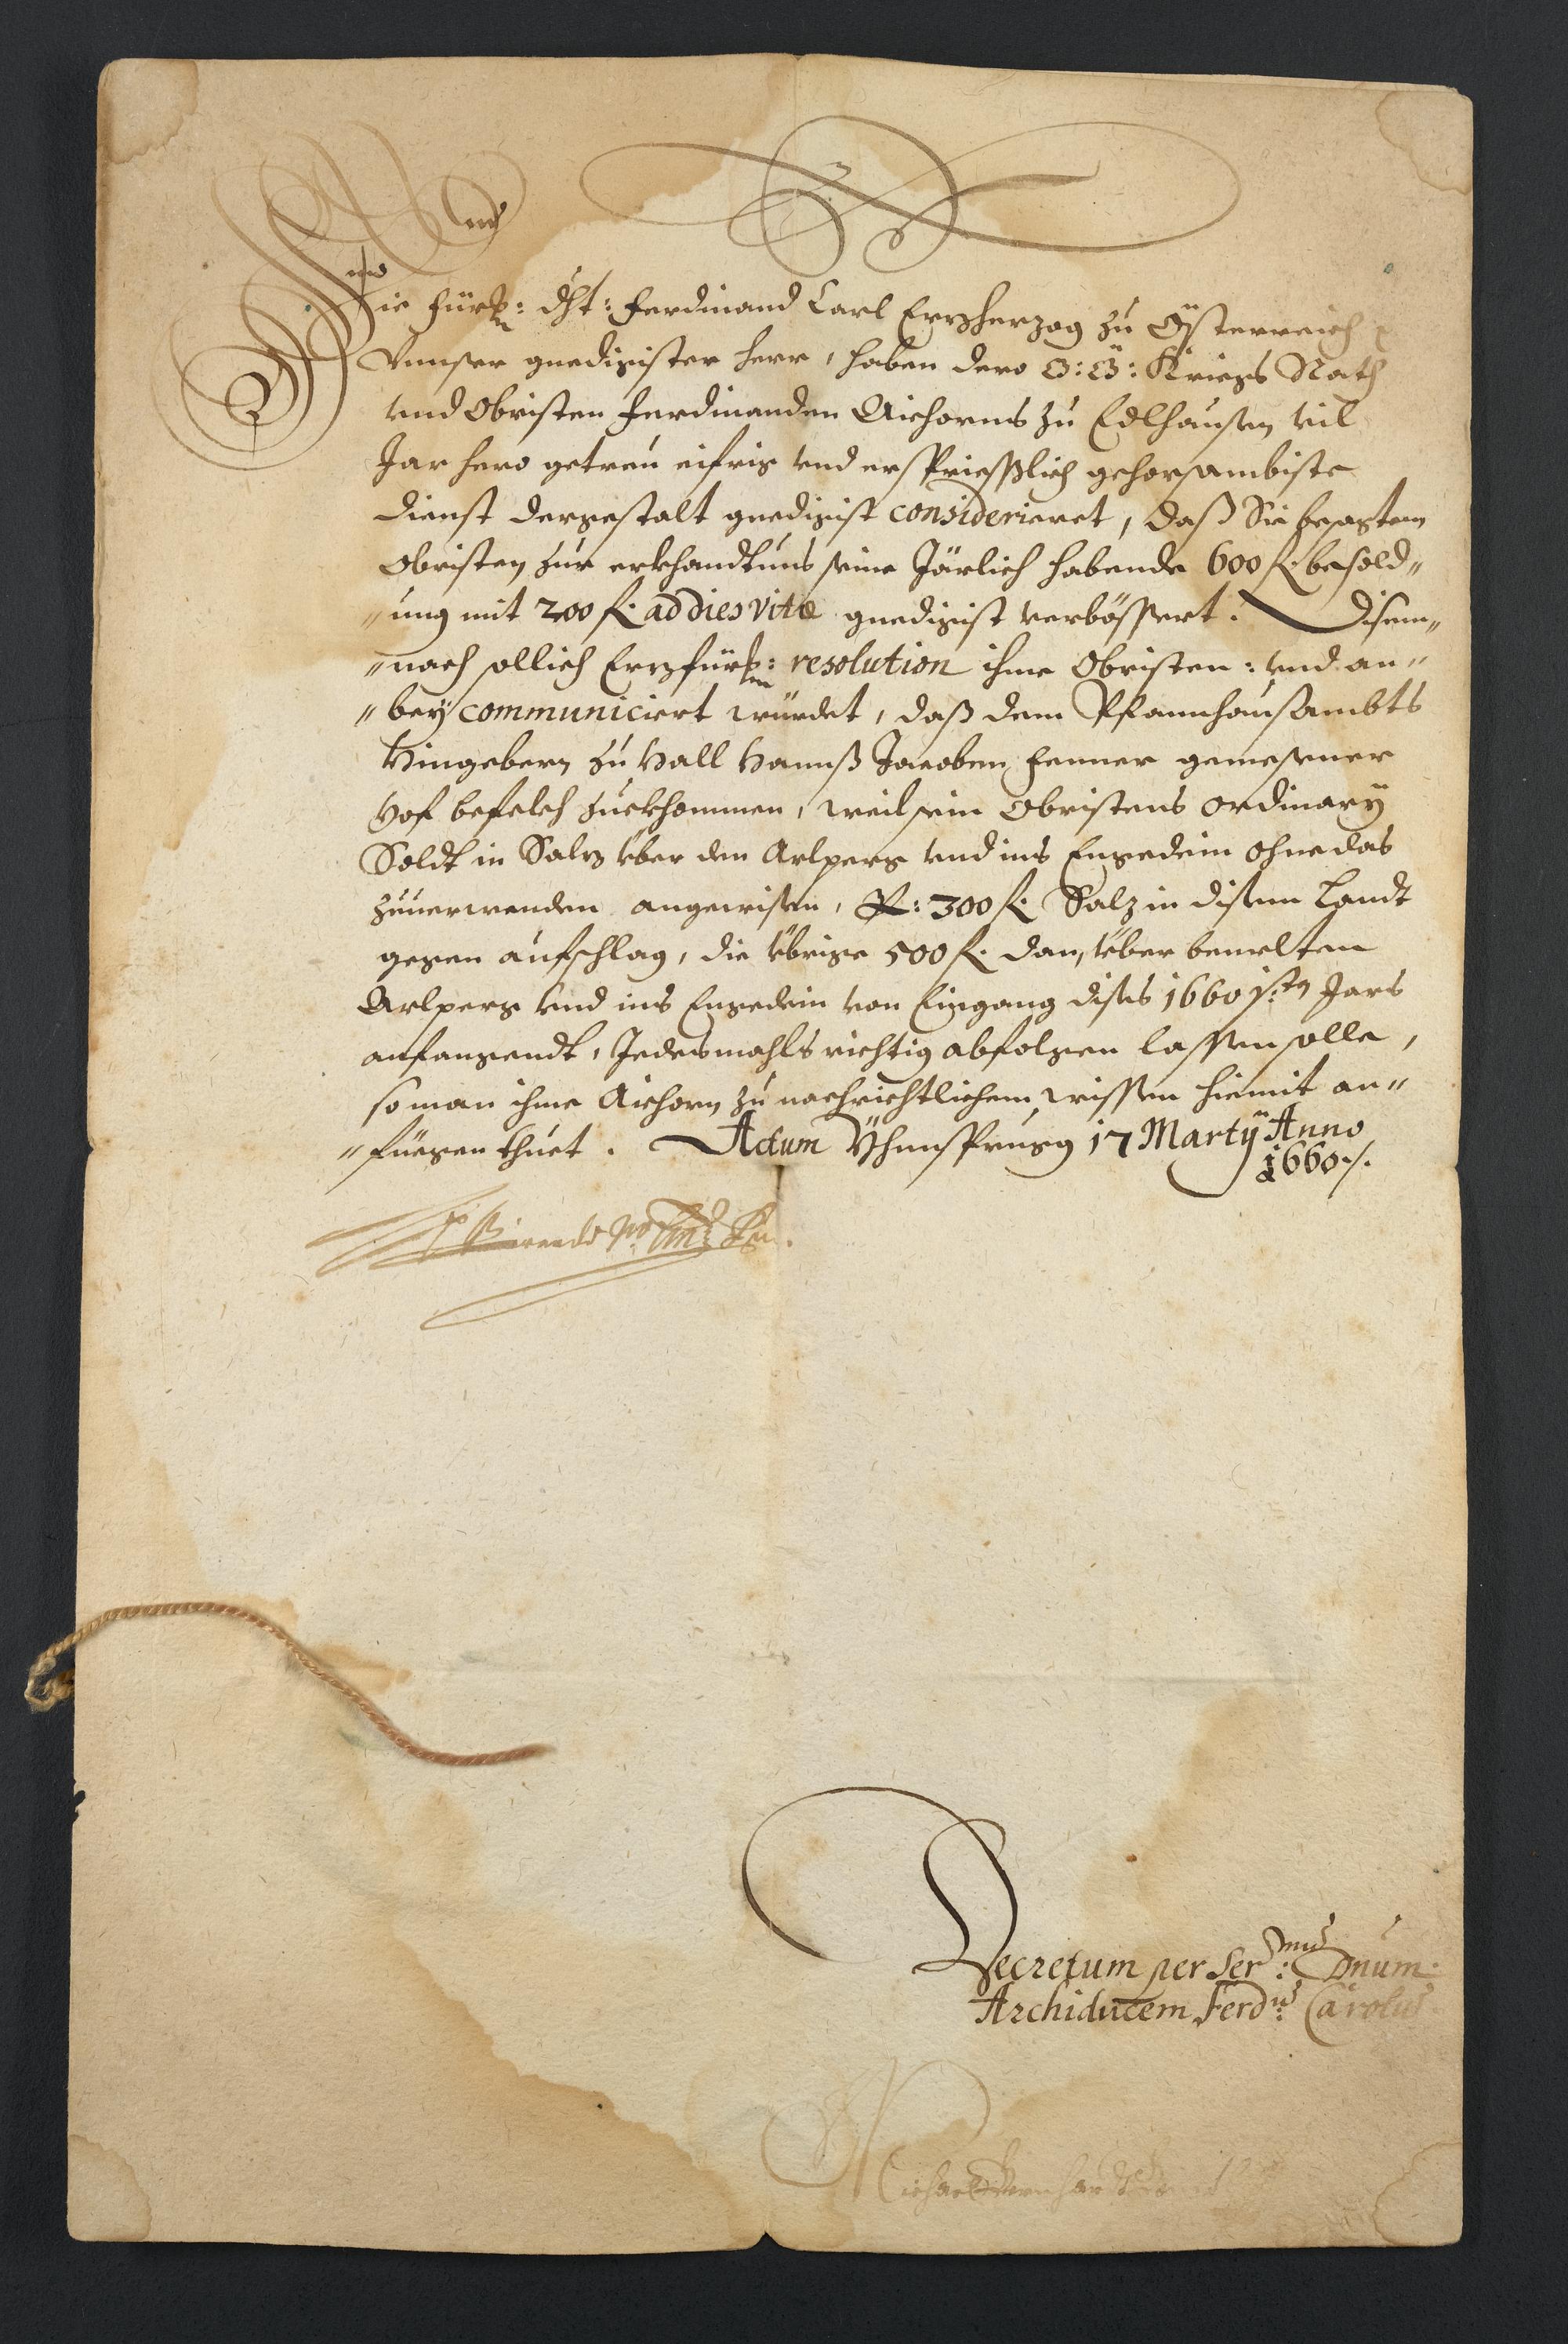 Die Fürstl: Dht: Ferdinand Carl Erzherzog zu Össterreich
Vnnser gnedigister Herr, haben dero O: Ö: Kriegs Rath
vnd Obristen Ferdinanden Aichorns zu Edlhausen vil
Jar hero getreu eifrig vnd ersprießlich gehorsambiste
Dienst dergestalt gnedigist considerieret, daß Sie besagtem
Obristen zur erkhandtnus seine Järlich habende 600 fl. besold„
„ung mit 200 fl. ad dies vitæ gnedigist verbössert. Disem„
„nach sollich Erzfürstl: resolution ihme Obristen: vnd an„
„bey communiciert würdet, daß dem Pfannhausambts
Hingebern zu Hall Hannß Jacoben Fenner gemessner
Hof befelch zuekhommen, weil sein Obristens ordinary
Soldt in Salz über den Arlperg vnd ins Engedein ohne das
zuuerwenden angewisen, R: 300 fl. Salz in disem Landt
gegen aufschlag, die übrige 500 fl. dan, über bemelten
Arlperg vnd ins Engedein von Eingang dises 1660isten Jars
anfangendt, Jedesmahls richtig abfolgen lassen solle,
so man ihme Aichorn zu nachrichtlichem wissen hiemit an„
„füegen thuet. Actum Yhnsprugg 17 Martÿ Anno
1660./.
Decretum per Ser:mus Dnum:
Archiducem Ferd:us Carolus